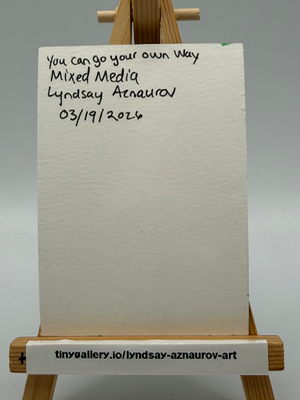 You can go your own way
Mixed Media
Lyndsay Aznaurov
03/19/2026
tinygallery.io/lyndsay-aznaurov-art